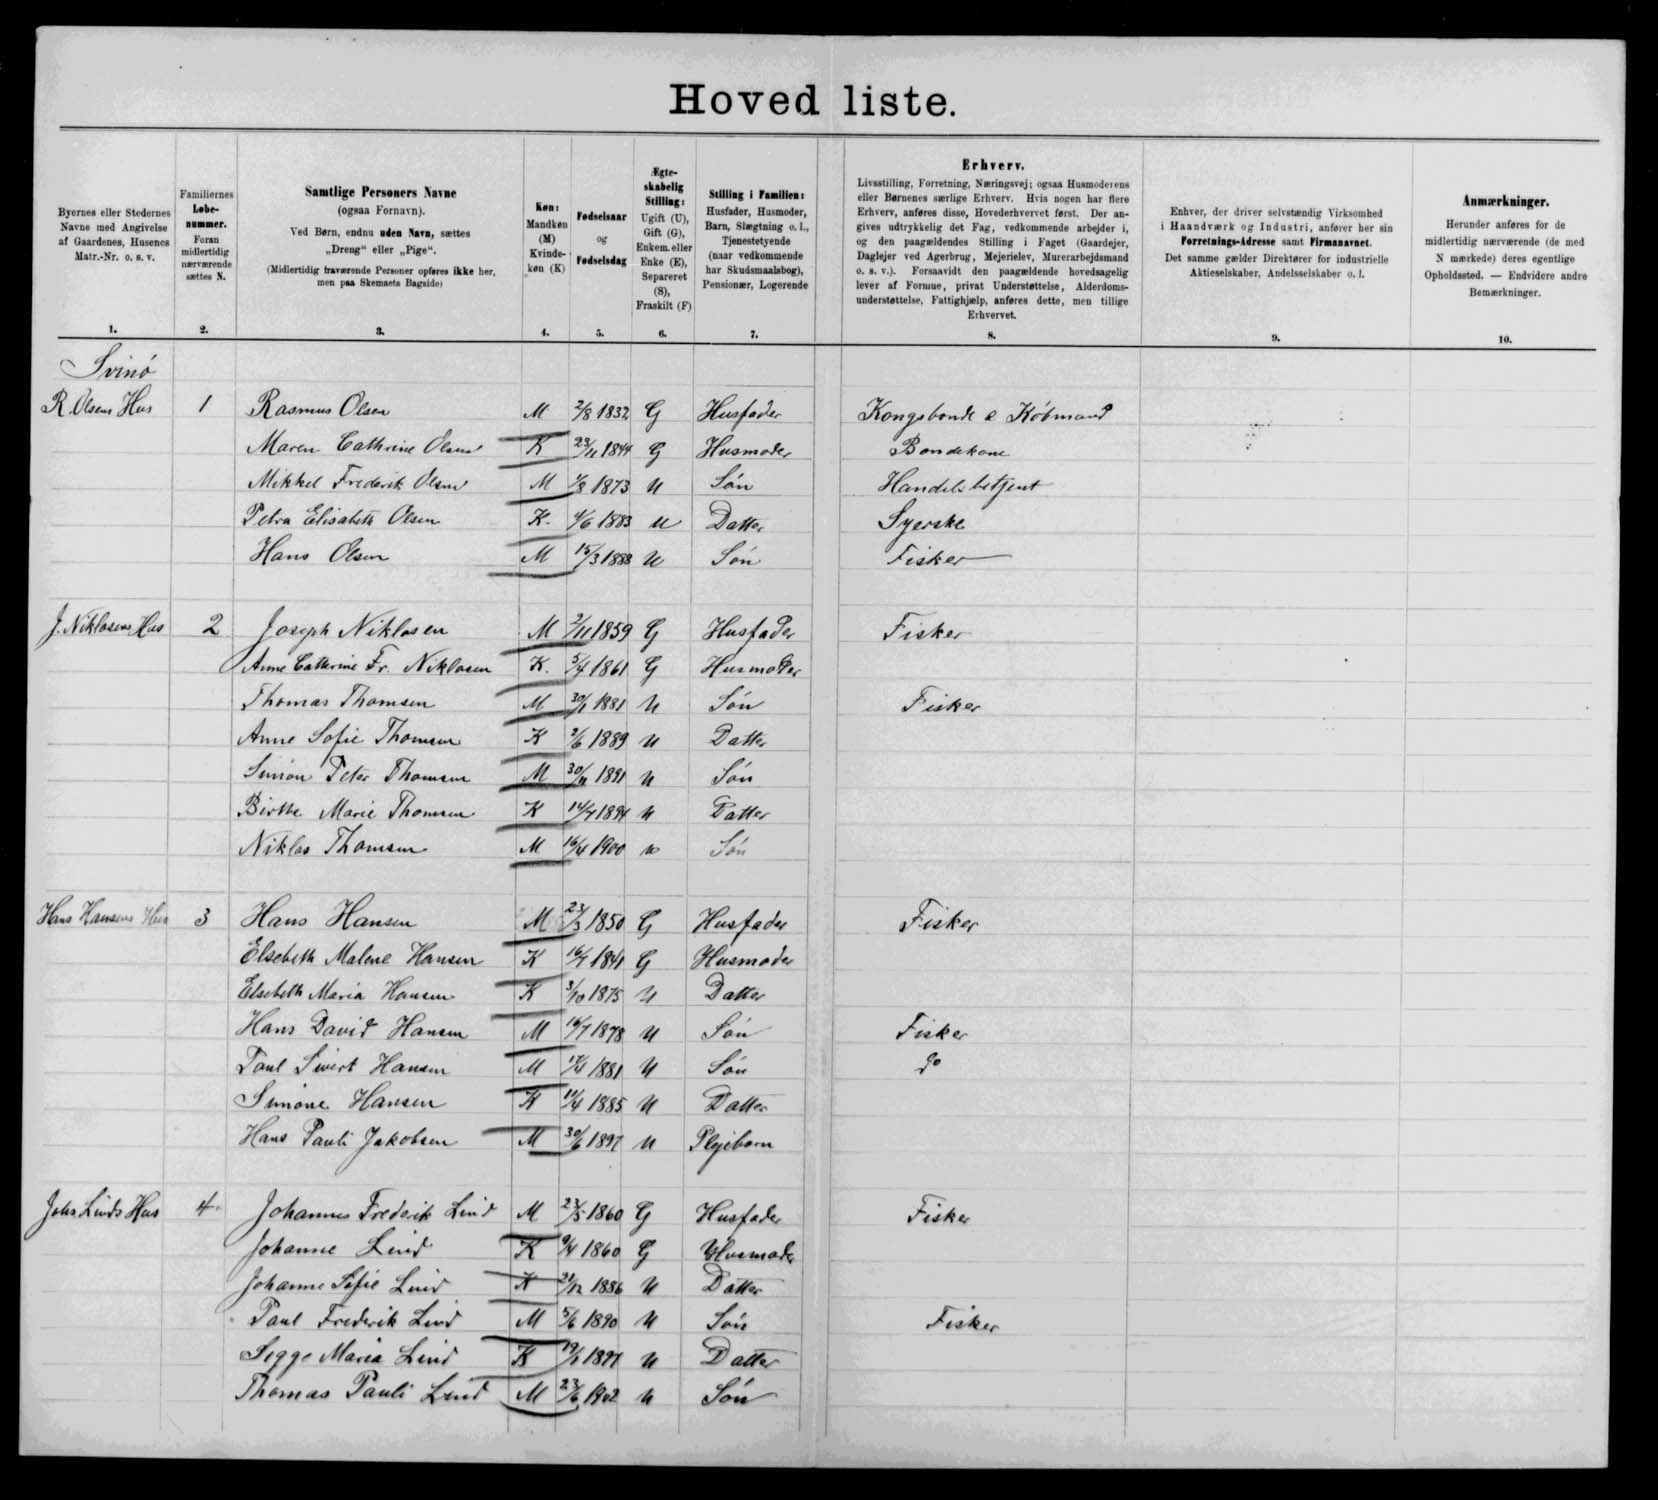 Hovedliste.
Byernes eller Stedernes
Navne med Angivelse
af Gaardenes, Husenes
Matr.-Nr. o. s. v.
1.
Familiernes
Løbe-
nummer.
Foran
midlertidig
nærværende
sættes N.
2.
Samtlige Personers Navne
(ogsaa Fornavn).
Ved Børn, endnu uden Navn, sættes
„Dreng“ eller „Pige“.
(Midlertidig fraværende Personer opføres ikke her,
men paa Skemaets Bagside)
3.
Køn:
Mandkøn
(M)
Kvinde-
køn (K)
4.
Fødselsaar
og
Fødselsdag
5.
Ægte-
skabelig
Stilling:
Ugift (U),
Gift (G),
Enkem. eller
Enke (E),
Separeret
(S),
Fraskilt (F)
6.
Stilling i Familien:
Husfader, Husmoder,
Barn, Slægtning o. l.,
Tjenestetyende
(naar vedkommende
har Skudsmaalsbog),
Pensionær, Logerende
7.
Erhverv.
Livsstilling, Forretning, Næringsvej; ogsaa Husmoderens
eller Børnenes særlige Erhverv. Hvis nogen har flere
Erhverv, anføres disse, Hovederhvervet først. Der an-
gives udtrykkelig det Fag, vedkommende arbejder i,
og den paagældendes Stilling i Faget (Gaardejer,
Daglejer ved Agerbrug, Mejerielev, Murerarbejdsmand
o. s. v.). Forsaavidt den paagældende hovedsagelig
lever af Formue, privat Understøttelse, Alderdoms-
understøttelse, Fattighjælp, anføres dette, men tillige
Erhvervet.
8.
Enhver, der driver selvstændig Virksomhed
i Haandværk og Industri, anfører her sin
Forretnings-Adresse samt Firmanavnet.
Det samme gælder Direktører for industrielle
Aktieselskaber, Andelsselskaber o. l.
9.
Anmærkninger.
Herunder anføres for de
midlertidig nærværende (de med
N mærkede) deres egentlige
Opholdssted. — Endvidere andre
Bemærkninger.
10.
Svinö
R. Olsens Hus 1 Rasmus Olsen M 2/8 1832 G Husfader Kongsbonde & Købmand
Maren Cathrine Olsen K 23/11 1844 G Husmoder Bondekone
Mikkel Frederik Olsen M 1/8 1873 U Søn Handelsbetjent
Petra Elisabeth Olsen K. 4/6 1883 U Datter Syerske
Hans Olsen M 15/3 1888 U Søn Fisker
J. Niklasens Hus 2 Joseph Niklasen M 2/11 1859 G Husfader Fisker
Anne Cathrine Fr. Niklasen K. 5/4 1861 G Husmoder
Thomas Thomsen M 30/1 1881 U Søn Fisker
Anne Sofie Thomsen K 2/6 1889 U Datter
Simon Peter Thomsen M 30/11 1891 U Søn
Birthe Marie Thomsen K 14/7 1894 U Datter
Niklas Thomsen M 16/4 1900 U Søn
Hans Hansens Hus 3 Hans Hansen M 23/3 1850 G Husfader Fisker
Elsebeth Malene Hansen K 16/7 1841 G Husmoder
Elsebeth Maria Hansen K 3/10 1875 U Datter
Hans David Hansen M 16/7 1878 U Søn Fisker
Poul Sivert Hansen M 17/4 1881 U Søn do
Simone Hansen K 11/4 1885 U Datter
Hans Pauli Jakobsen M 30/6 1897 U Plejebarn
Johs Linds Hus 4 Johannes Frederik Lind M 23/5 1860 G Husfader Fisker
Johanne Lind K 9/4 1860 G Husmoder
Johanne Sofie Lind K 21/12 1886 U Datter
Paul Frederik Lind M 5/6 1890 U Søn Fisker
Sigge Maria Lind K 19/1 1897 U Datter
Thomas Pauli Lind M 23/6 1902 U Søn